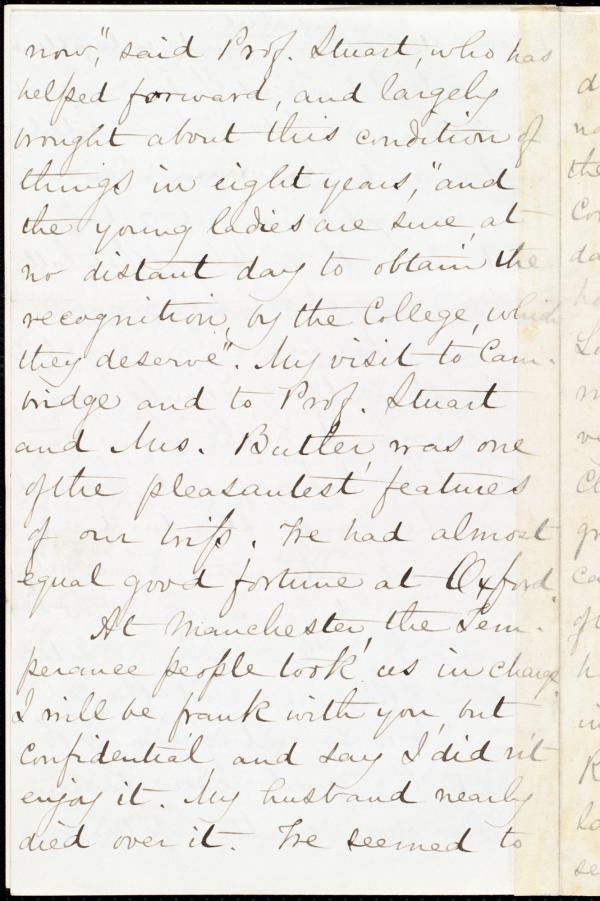 now," said Prof. Stuart, who has
helped forward, and largely
brought about this condition of
things in eight years, "and
the young ladies are sure, at
no distant day to obtain the
recognition, by the College, which
they deserve". My visit to Cam-
bridge and to Prof. Stuart
and Mrs. Butler, was one
of the pleasantest features
of our trip. We had almost
equal good fortune at Oxford.
At Manchester, the Tem-
perance people took us in charge.
I will be frank with you, but
confidential and say I did n't
enjoy it. My husband nearly
died over it. We seemed to